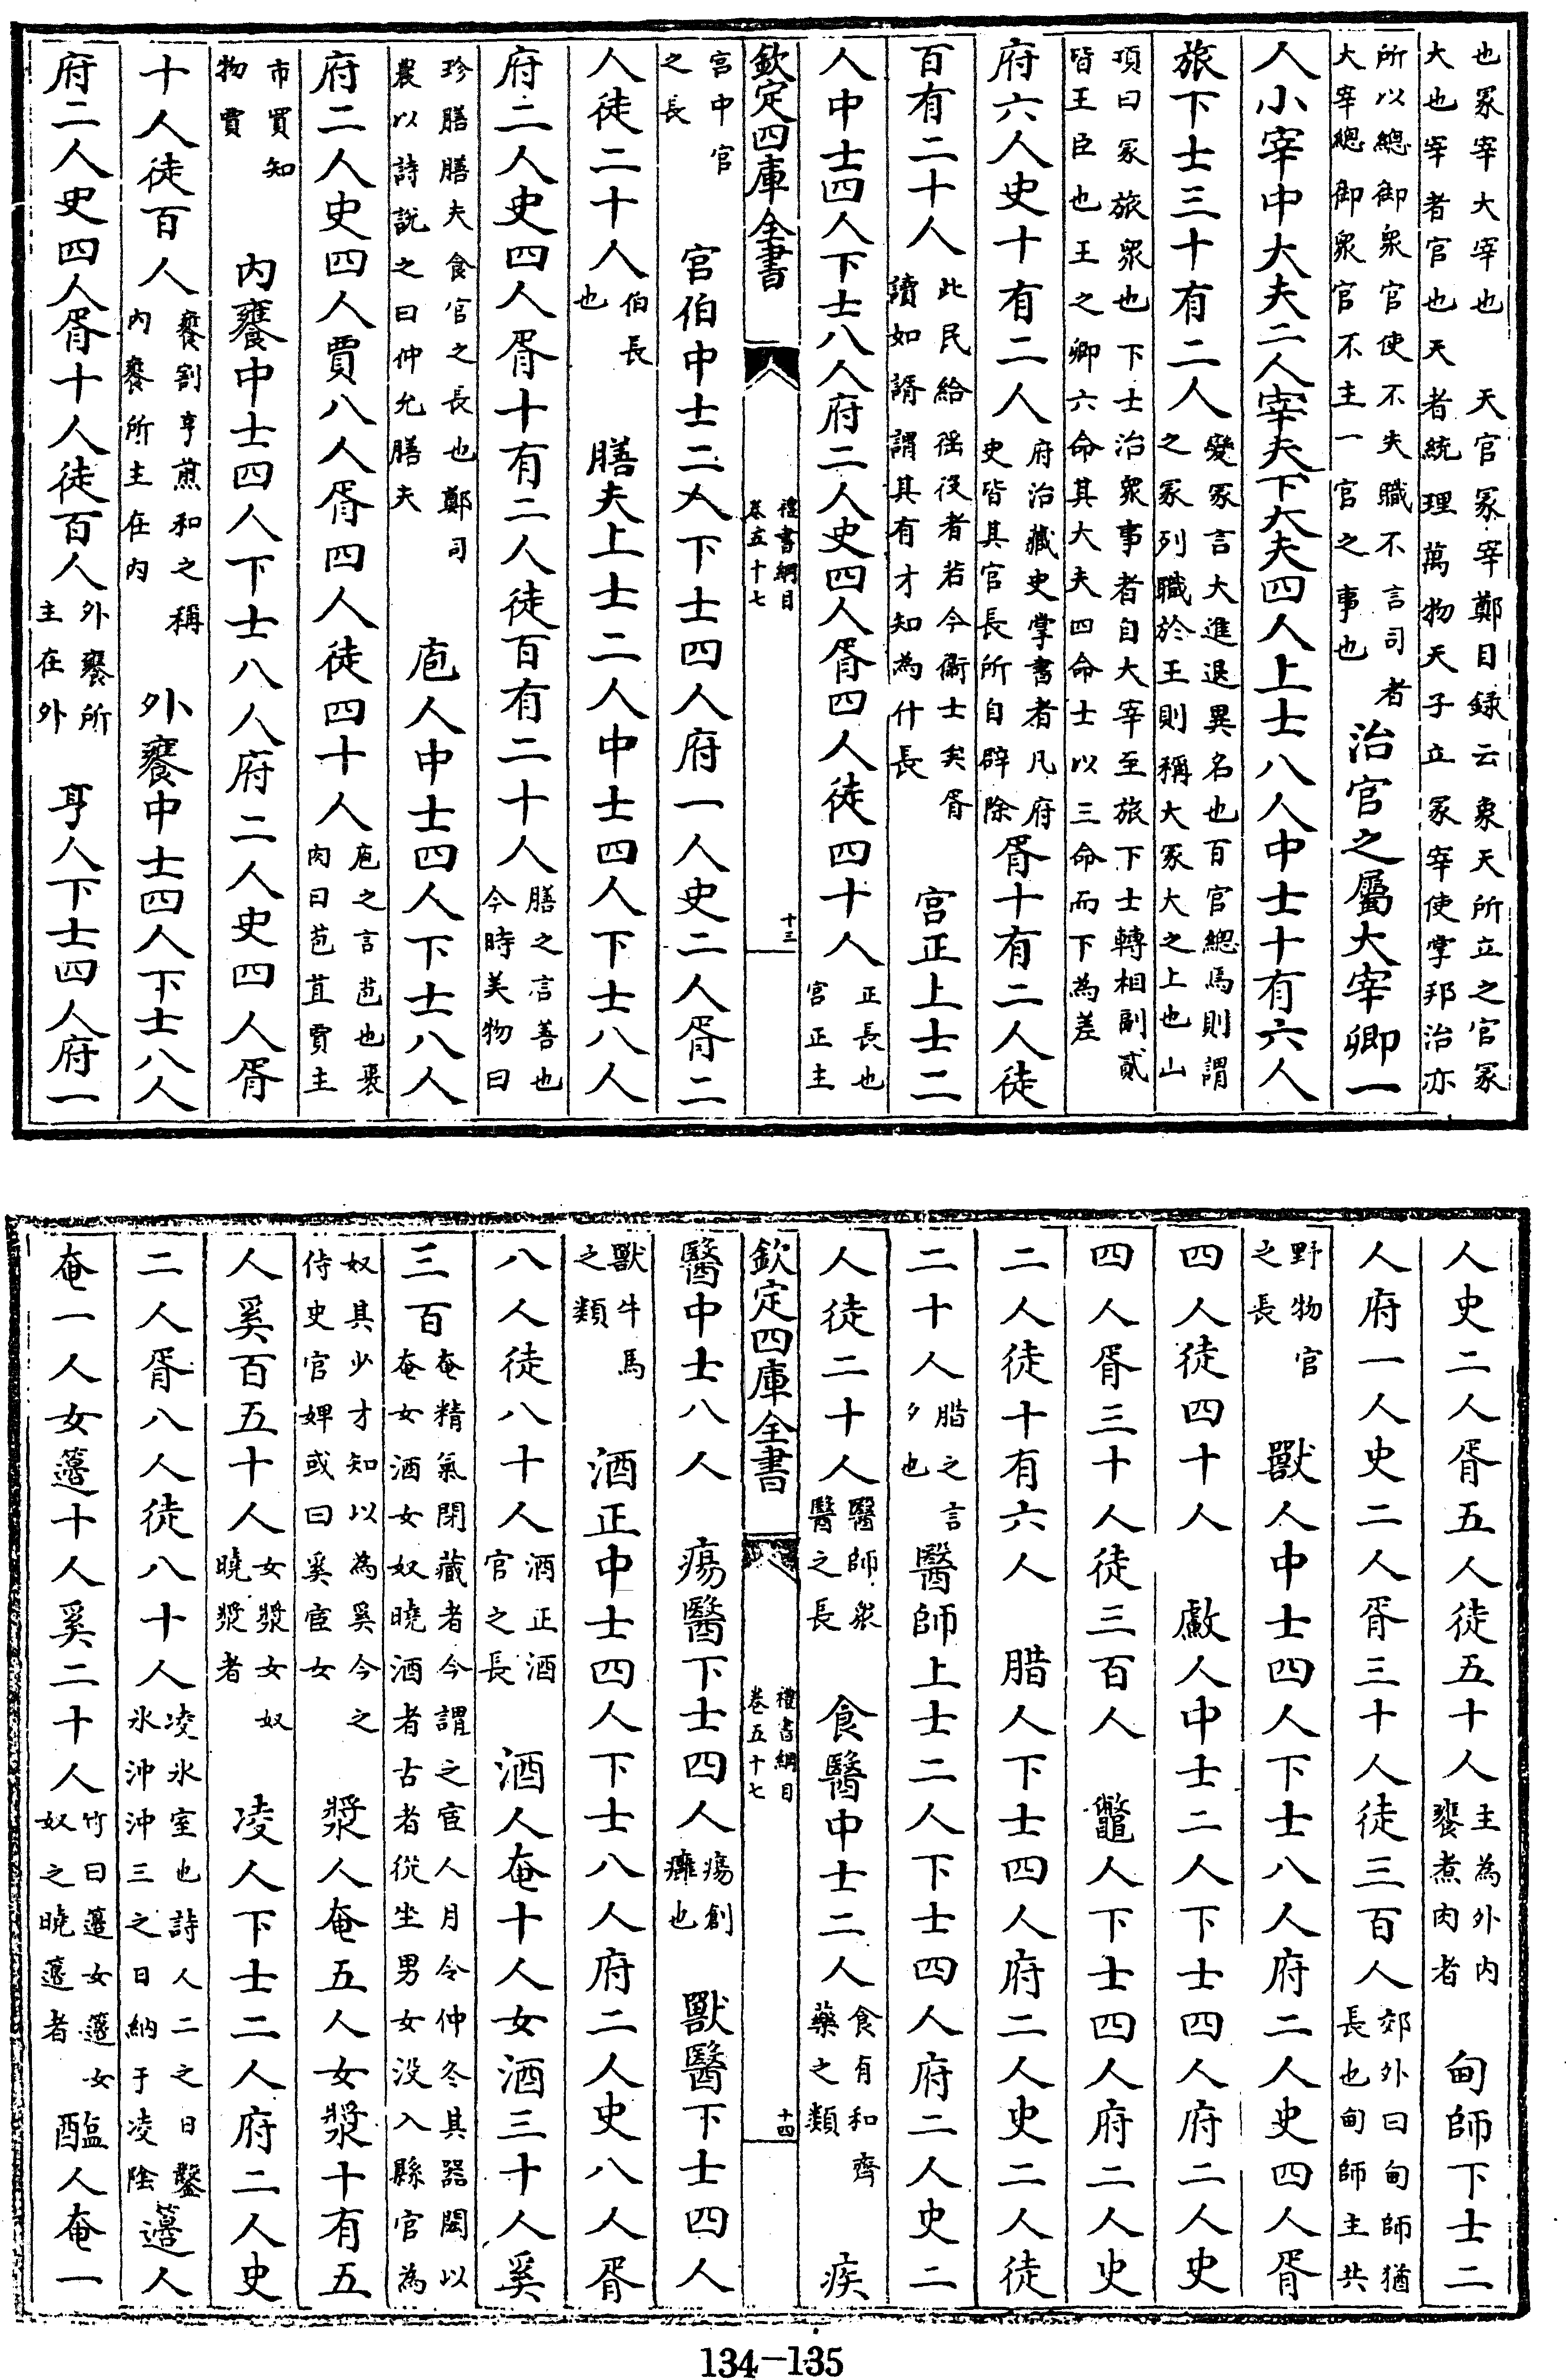 也冢宰大宰也　天官冢宰鄭目録云象天所立之官冢
大也宰者官也天者統理萬物天子立冢宰使掌邦治亦
所以總御衆官使不失職不言司者
大宰總御衆官不主一官之事也
治官之屬大宰卿一
人小宰中大夫二人宰夫下大夫四人上士八人中士十有六人
旅下士三十有二人
變冢言大進退異名也百官總焉則謂
之冢列職於王則稱大冢大之上也山
頂曰冢旅衆也下士治衆事者自大宰至旅下士轉相副貳
皆王臣也王之卿六命其大夫四命士以三命而下為差
府六人史十有二人
府治藏史掌書者凡府
史皆其官長所自辟除
胥十有二人徒
百有二十人
此民給徭役者若今衞士矣胥
讀如諝謂其有才知為什長
宫正上士二
人中士四人下士八人府二人史四人胥四人徒四十人
正長也
宫正主
欽定四庫全書
禮書綱目
卷五十七
十三
宫中官
之長
宫伯中士二人下士四人府一人史二人胥二
人徒二十人
伯長
也
膳夫上士二人中士四人下士八人
府二人史四人胥十有二人徒百有二十人
膳之言善也
今時美物曰
珍膳膳夫食官之長也鄭司
農以詩説之曰仲允膳夫
庖人中士四人下士八人
府二人史四人賈八人胥四人徒四十人
庖之言苞也裹
肉曰苞苴賈主
市買知
物賈
內饔中士四人下士八人府二人史四人胥
十人徒百人
饔割亨煎和之稱
內饔所主在內
外饔中士四人下士八人
府二人史四人胥十人徒百人
外饔所
主在外
亨人下士四人府一
人史二人胥五人徒五十人
主為外內
饔煮肉者
甸師下士二
人府一人史二人胥三十人徒三百人
郊外曰甸師猶
長也甸師主共
野物官
之長
獸人中士四人下士八人府二人史四人胥
四人徒四十人　䱷人中士二人下士四人府二人史
四人胥三十人徒三百人　鼈人下士四人府二人史
二人徒十有六人　腊人下士四人府二人史二人徒
二十人
腊之言
夕也
醫師上士二人下士四人府二人史二
人徒二十人
醫師衆
醫之長
食醫中士二人
食有和齊
藥之類
疾
欽定四庫全書
禮書綱目
卷五十七
十四
醫中士八人　瘍醫下士四人
瘍創
癰也
獸醫下士四人
獸牛馬
之類
酒正中士四人下士八人府二人史八人胥
八人徒八十人
酒正酒
官之長
酒人奄十人女酒三十人奚
三百
奄精氣閉藏者今謂之宦人月令仲冬其器閎以
奄女酒女奴曉酒者古者從坐男女没入縣官為
奴其少才知以為奚今之
侍史官婢或曰奚宦女
漿人奄五人女漿十有五
人奚百五十人
女漿女奴
曉漿者
凌人下士二人府二人史
二人胥八人徒八十人
凌氷室也詩人二之日鑿
氷沖沖三之日納于凌隂
籩人
奄一人女籩十人奚二十人
竹曰籩女籩女
奴之曉籩者
醢人奄一
134—135